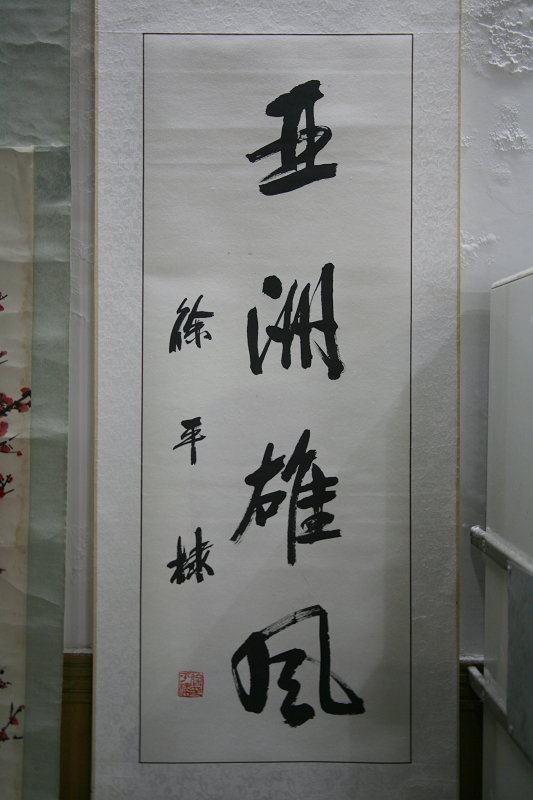 亚洲雄风
徐平棣